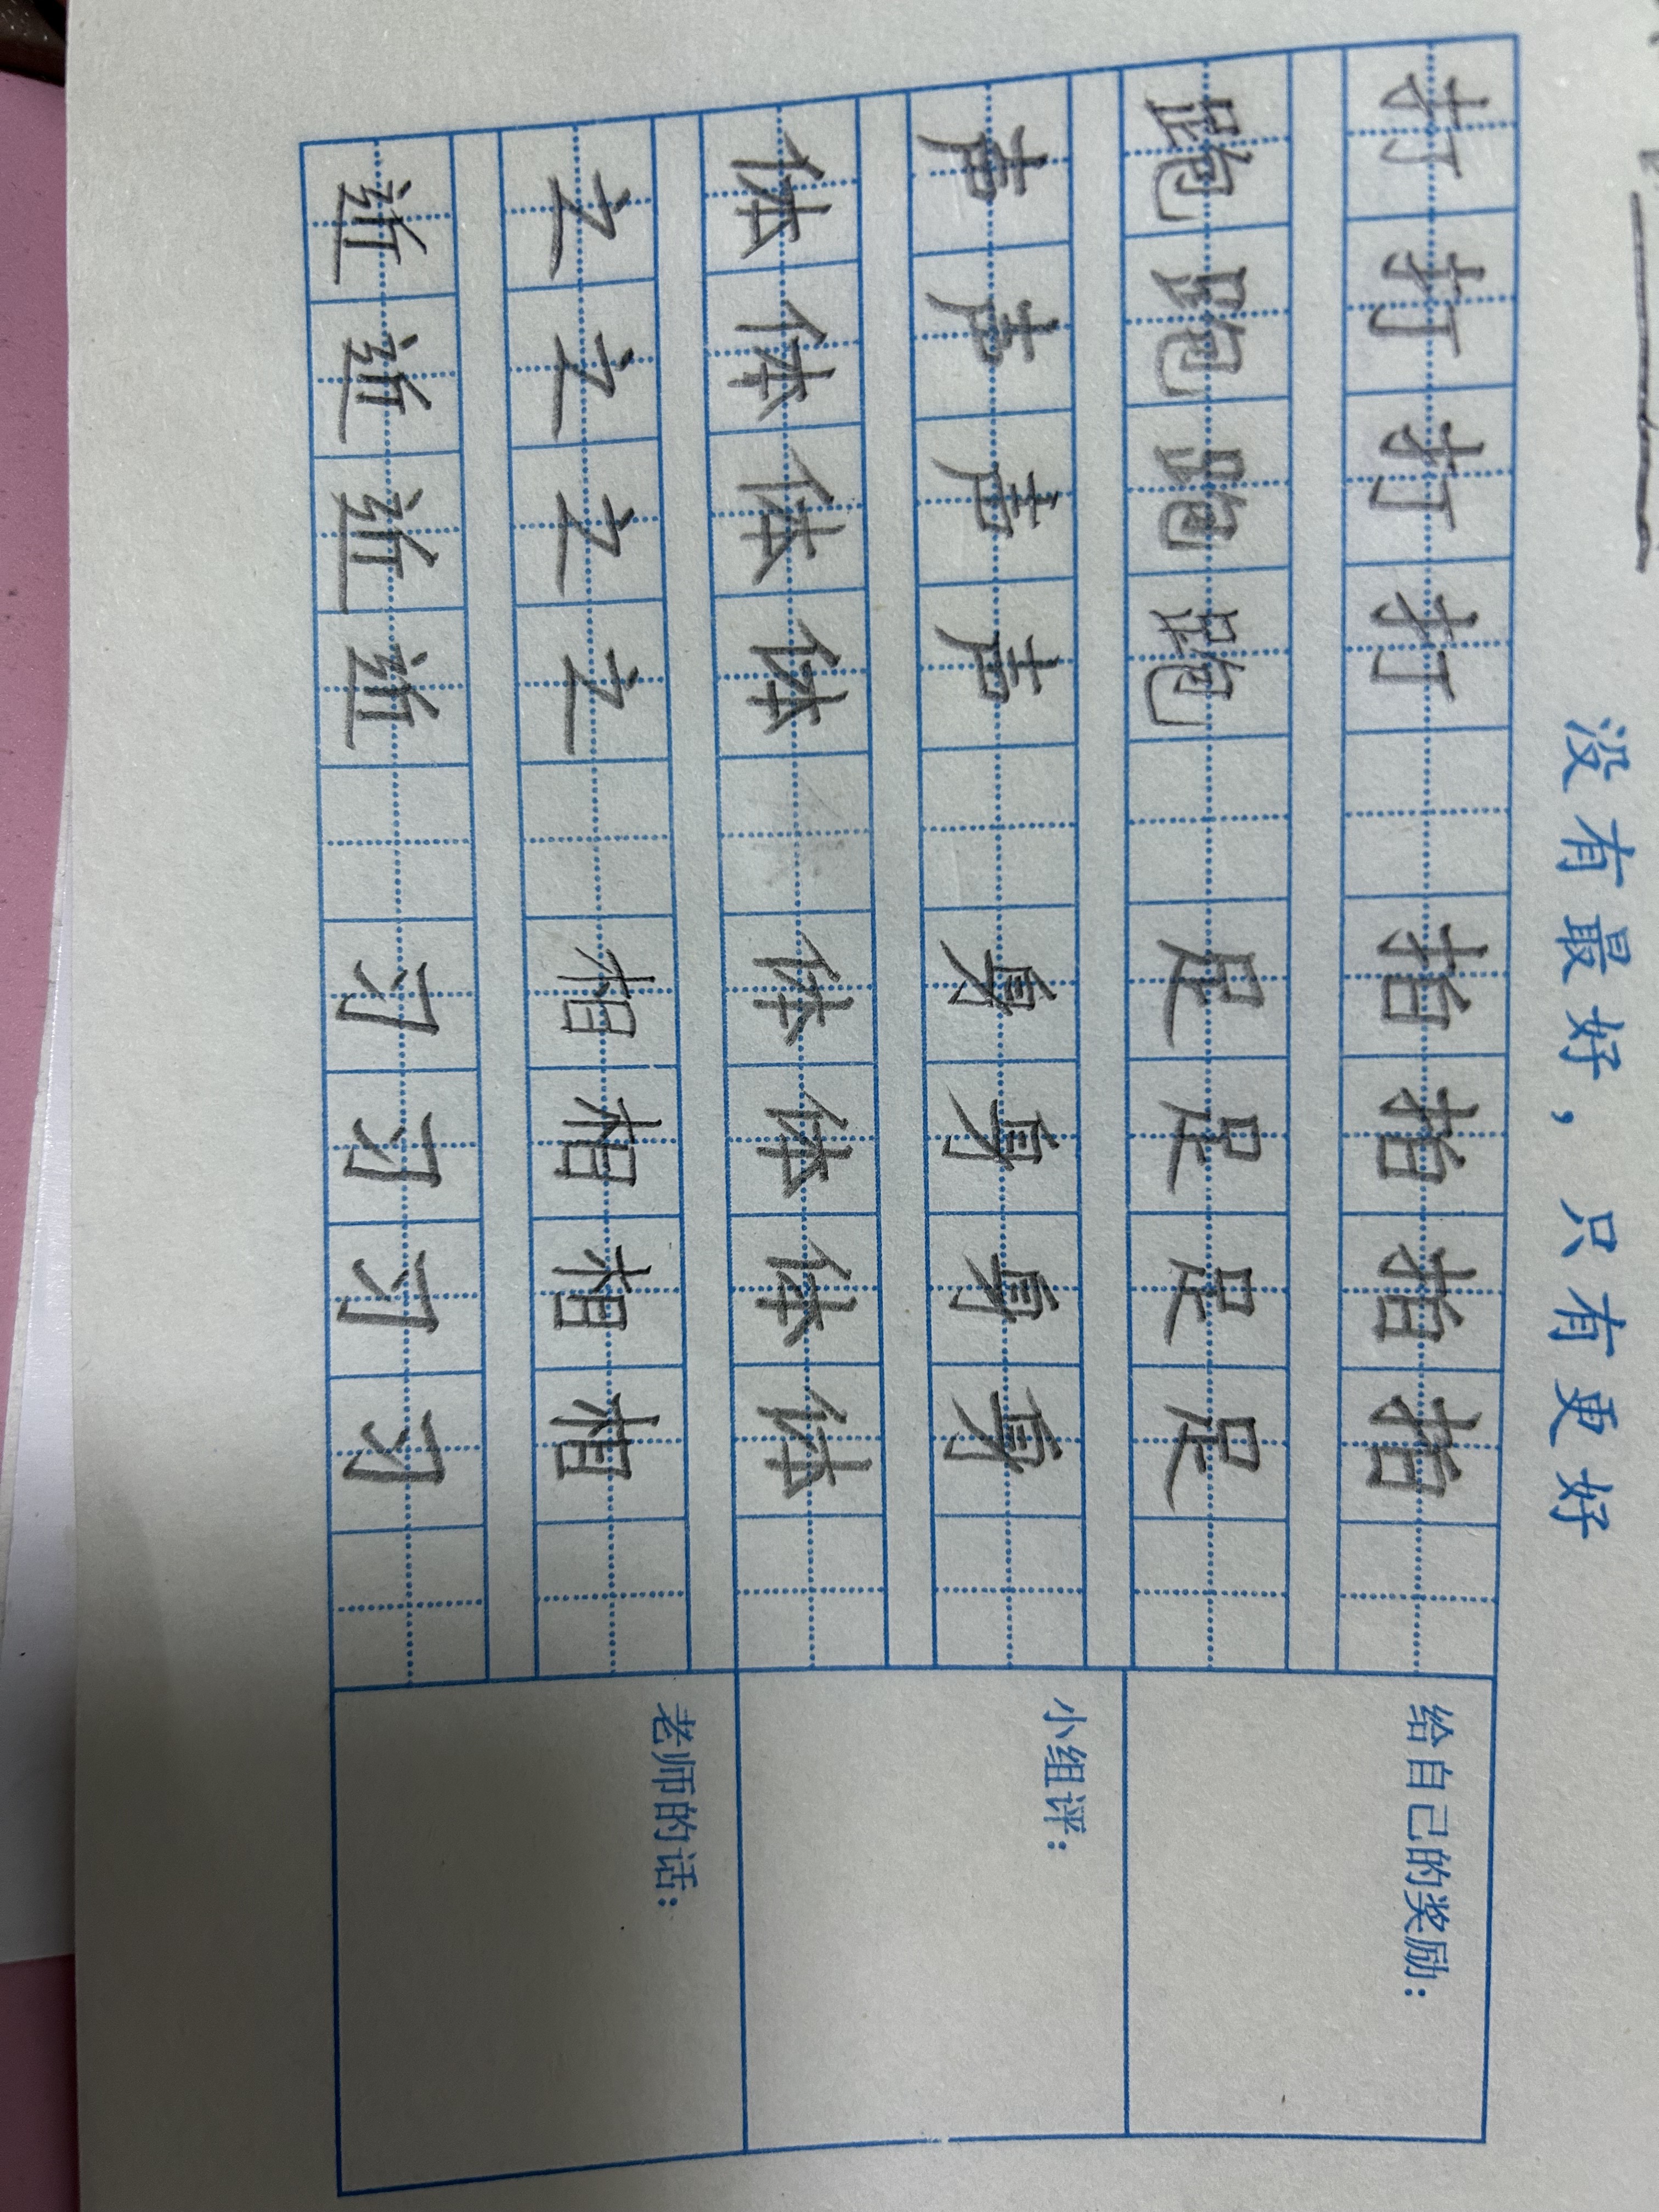 没有最好，只有更好
打打打打 拍拍拍拍
跑跑跑跑 足足足足
声声声声 身身身身
体体体体 体体体体
之之之之 相相相相
近近近近 习习习习
给自己的奖励：
小组评：
老师的话：